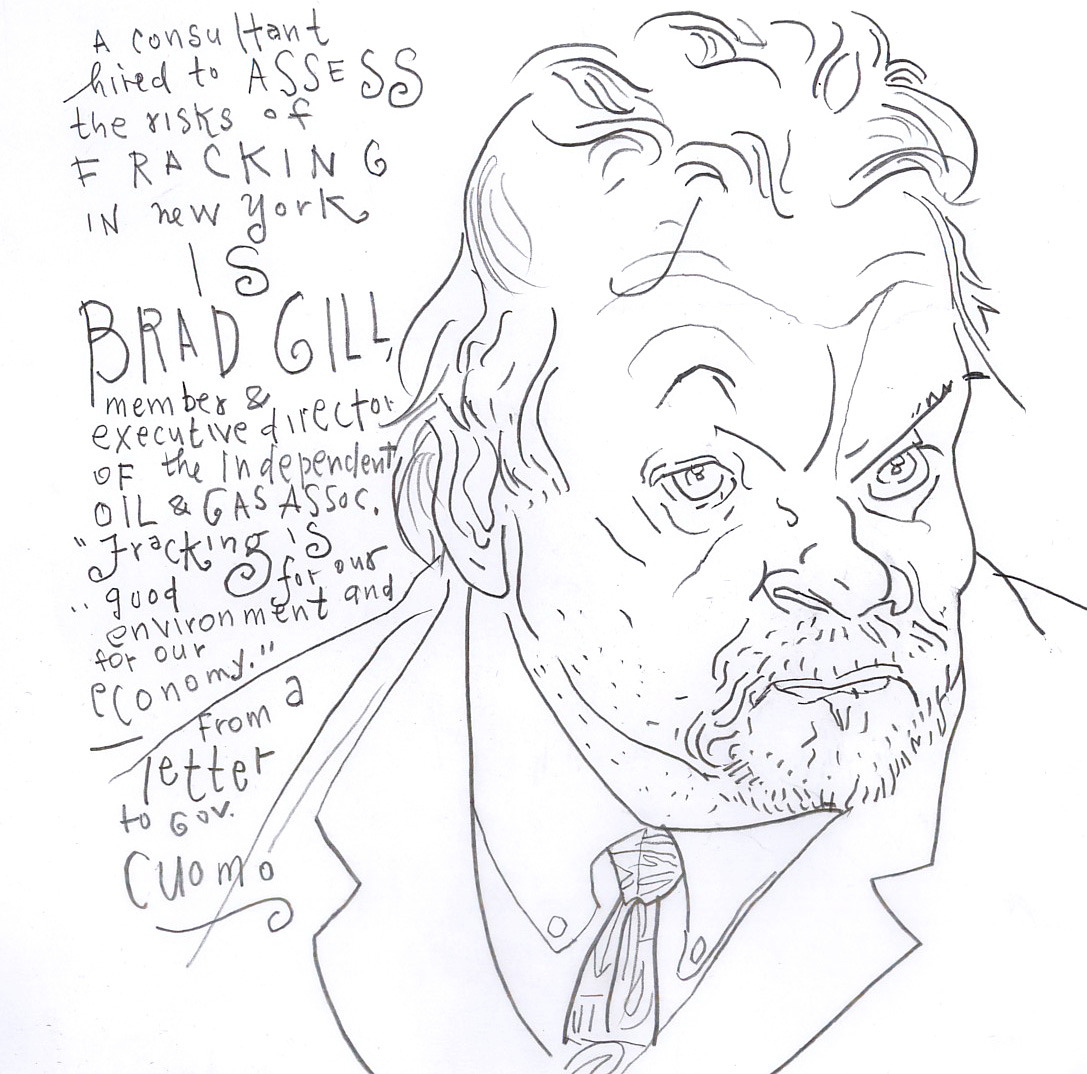 A consultant
hired to ASSESS
the risks of
FRACKING
IN new york
IS
BRAD GILL,
member &
executive director
OF the Independent
OIL & GAS ASSOC.
"Fracking is
good for our
environment and
for our
economy."
From a
letter
to Gov.
Cuomo